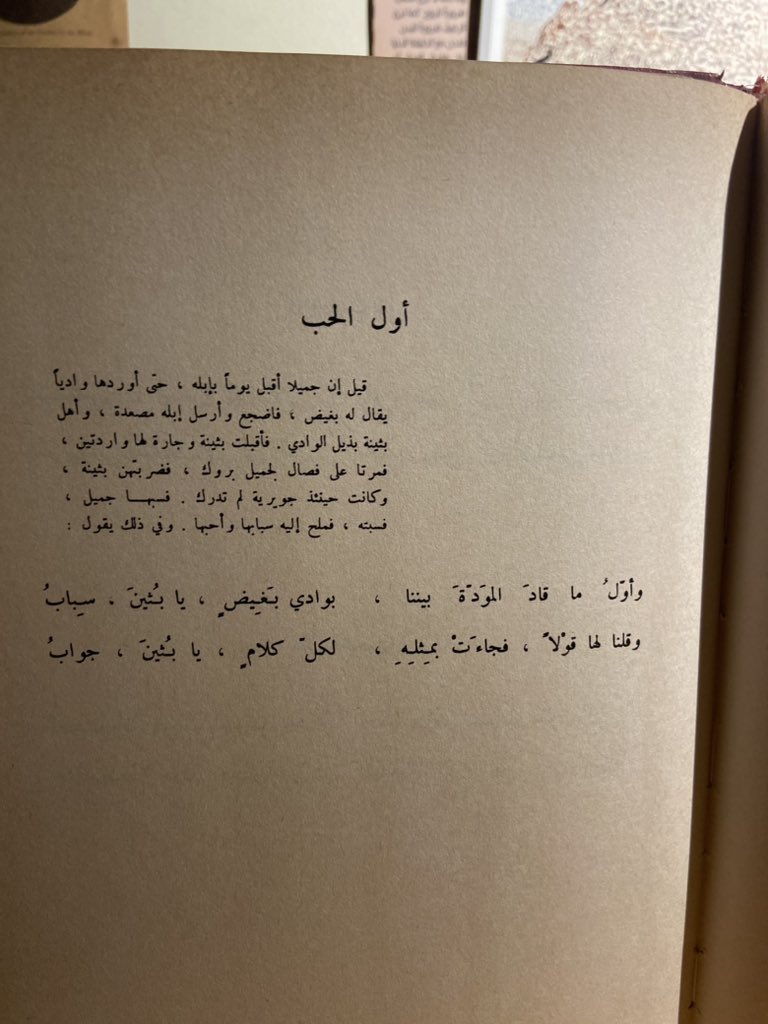 أول الحب
قيل إن جميلا أقبل يوماً بإبله ، حتى أوردها وادياً
يقال له بغيض ، فاضجع وأرسل إبله مصعدة ، وأهل
بثينة بذيل الوادي . فأقبلت بثينة وجارة لها واردتين ،
فمرتا على فصال لجميل بروك ، فضربتهن بثينة ،
وكانت حينئذ جويرية لم تدرك . فسبهــا جميل ،
فسبته ، فملح إليه سبابها وأحبها . وفي ذلك يقول :
وأوّلُ ما قادَ المَوَدّةَ بيننا ، بوادي بَغِيضٍ ، يا بُثينَ ، سِبابُ
وقلنا لها قوْلاً ، فجاءَتْ بمِثلِهِ ، لكلّ كلامٍ ، يا بُثينَ ، جوابُ